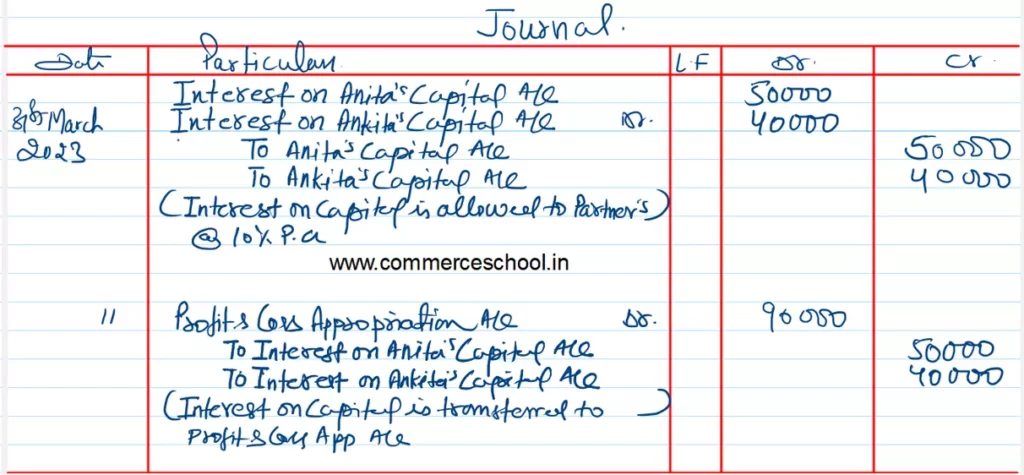 Journal.
Date Particulars L.F Dr. Cr.
Interest on Anita's Capital A/c 50000
31st March Interest on Ankita's Capital A/c Dr. 40000
2023 To Anita's Capital A/c 50000
To Ankita's Capital A/c 40000
(Interest on Capital is allowed to Partner's)
@ 10% P.a
www.commerceschool.in
" Profit & Loss Appropriation A/c Dr. 90000
To Interest on Anita's Capital A/c 50000
To Interest on Ankita's Capital A/c 40000
(Interest on Capital is transferred to )
Profit & Loss App A/c